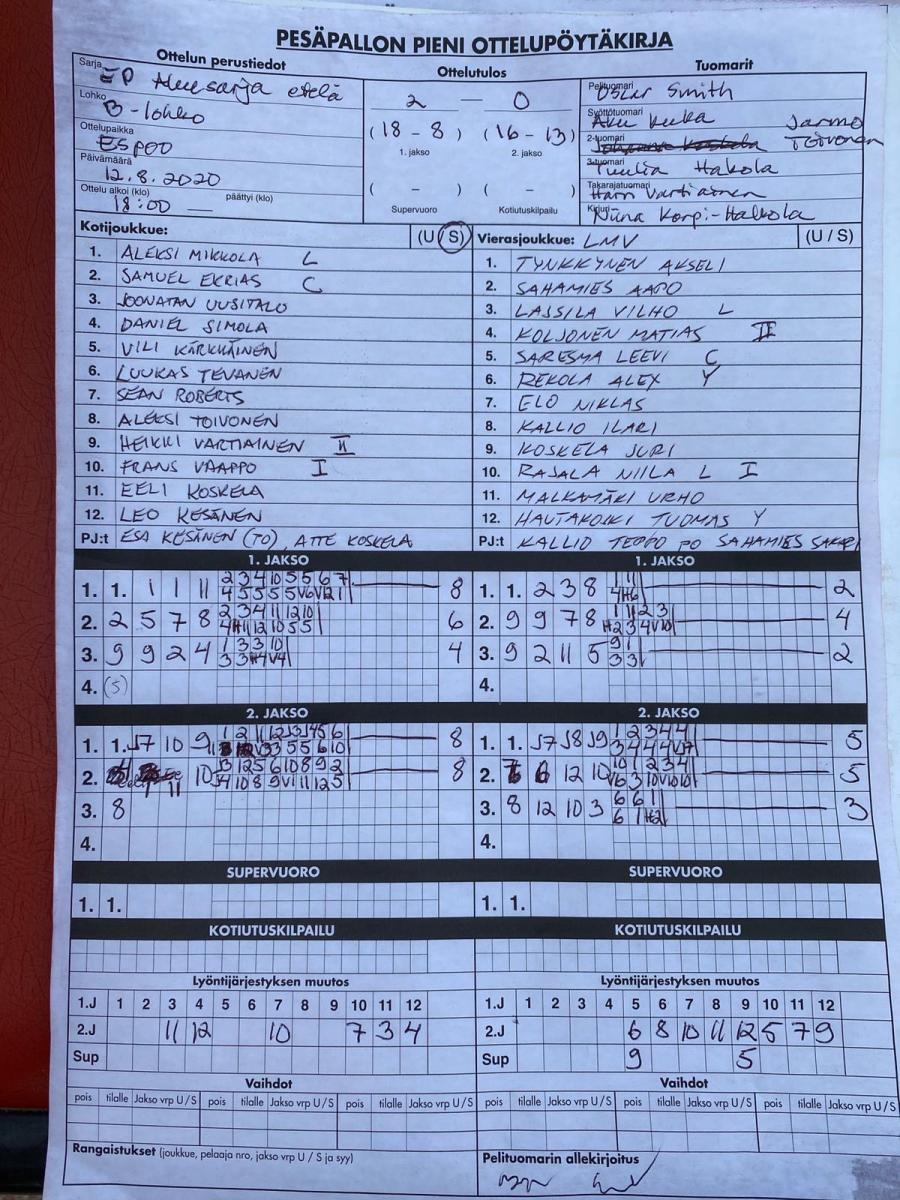 PESÄPALLON PIENI OTTELUPÖYTÄKIRJA
Ottelun perustiedot
Ottelutulos
Tuomarit
Sarja
Aluesarja etelä
Lohko
B-lohko
Ottelupaikka
ESPOO
Päivämäärä
12.8.2020
Ottelu alkoi (klo)
päättyi (klo)
18:00 —
2 — 0
(18 - 8) (16 - 13)
1. jakso
2. jakso
( - ) ( - )
Supervuoro
Kotiutuskilpailu
Pelituomari
Oscar Smith
Syöttötuomari
Aku Kuka
2-tuomari
Jarmo Toivonen
3-tuomari
Tuulia Hakola
Takarajatuomari
Harri Vartiainen
Kirjuri
Niina Korpi-Halkola
Kotijoukkue:
(U / S)
Vierasjoukkue: LMV
(U / S)
1. ALEKSI MIKKOLA L
2. SAMUEL EKRIAS C
3. JOONATAN UUSITALO
4. DANIEL SIMOLA
5. VILI KÄRKKÄINEN
6. LUUKAS TEVANEN
7. SEAN ROBERTS
8. ALEKSI TOIVONEN
9. HEIKKI VARTIAINEN II
10. FRANS VAAPPO I
11. EELI KOSKELA
12. LEO KESÄNEN
PJ:t ESA KESÄNEN (TO), ATTE KOSKELA
1. TYNKKYNEN AKSELI
2. SAHAMIES AAPO
3. LASSILA VILHO L
4. KOLJONEN MATIAS II
5. SARESMA LEEVI C
6. REKOLA ALEX Y
7. ELO NIKLAS
8. KALLIO ILARI
9. KOSKELA JURI
10. RAJALA NIILA L I
11. MALKAMÄKI URHO
12. HAUTAKOSKI TUOMAS Y
PJ:t KALLIO TEPPO PO SAHAMIES SAKARI
1. JAKSO
1. 1. 1 1 11
2 3 4 10 5 5 6 7
8
2. 2 5 7 8
2 3 4 11 12 10
4 H11 12 10 5 5
6
3. 9 9 2 4
1 3 3 10
3 3 H4 V4
4
4. (5)
1. JAKSO
1. 1. 2 3 8
1 1
4 H6
2
2. 9 9 7 8
1 11 2 3
H2 3 4 V10
4
3. 9 2 11 5
9 1
3 3
2
4.
2. JAKSO
1. 1. J7 10 9
8
2. 10
3 12 5 6 10 8 9 2
J4 10 8 9 V11 11 12 5
8
3. 8
4.
2. JAKSO
1. 1. J7 J8 J9
1 2 3 4 4
3 4 4 4 V7
5
2. 12 10
10 1 2 3 4
V6 3 10 V10 10
5
3. 8 12 10 3
6 6 1
6 1 H2
3
4.
SUPERVUORO
1. 1.
SUPERVUORO
1. 1.
KOTIUTUSKILPAILU
KOTIUTUSKILPAILU
Lyöntijärjestyksen muutos
1.J 1 2 3 4 5 6 7 8 9 10 11 12
2.J 11 12 10 7 3 4
Sup
Lyöntijärjestyksen muutos
1.J 1 2 3 4 5 6 7 8 9 10 11 12
2.J 6 8 10 11 12 5 7 9
Sup 9 5
Vaihdot
pois tilalle Jakso vrp U / S pois tilalle Jakso vrp U / S pois tilalle Jakso vrp U / S
Vaihdot
pois tilalle Jakso vrp U / S pois tilalle Jakso vrp U / S pois tilalle Jakso vrp U / S
Rangaistukset (joukkue, pelaaja nro, jakso vrp U / S ja syy)
Pelituomarin allekirjoitus